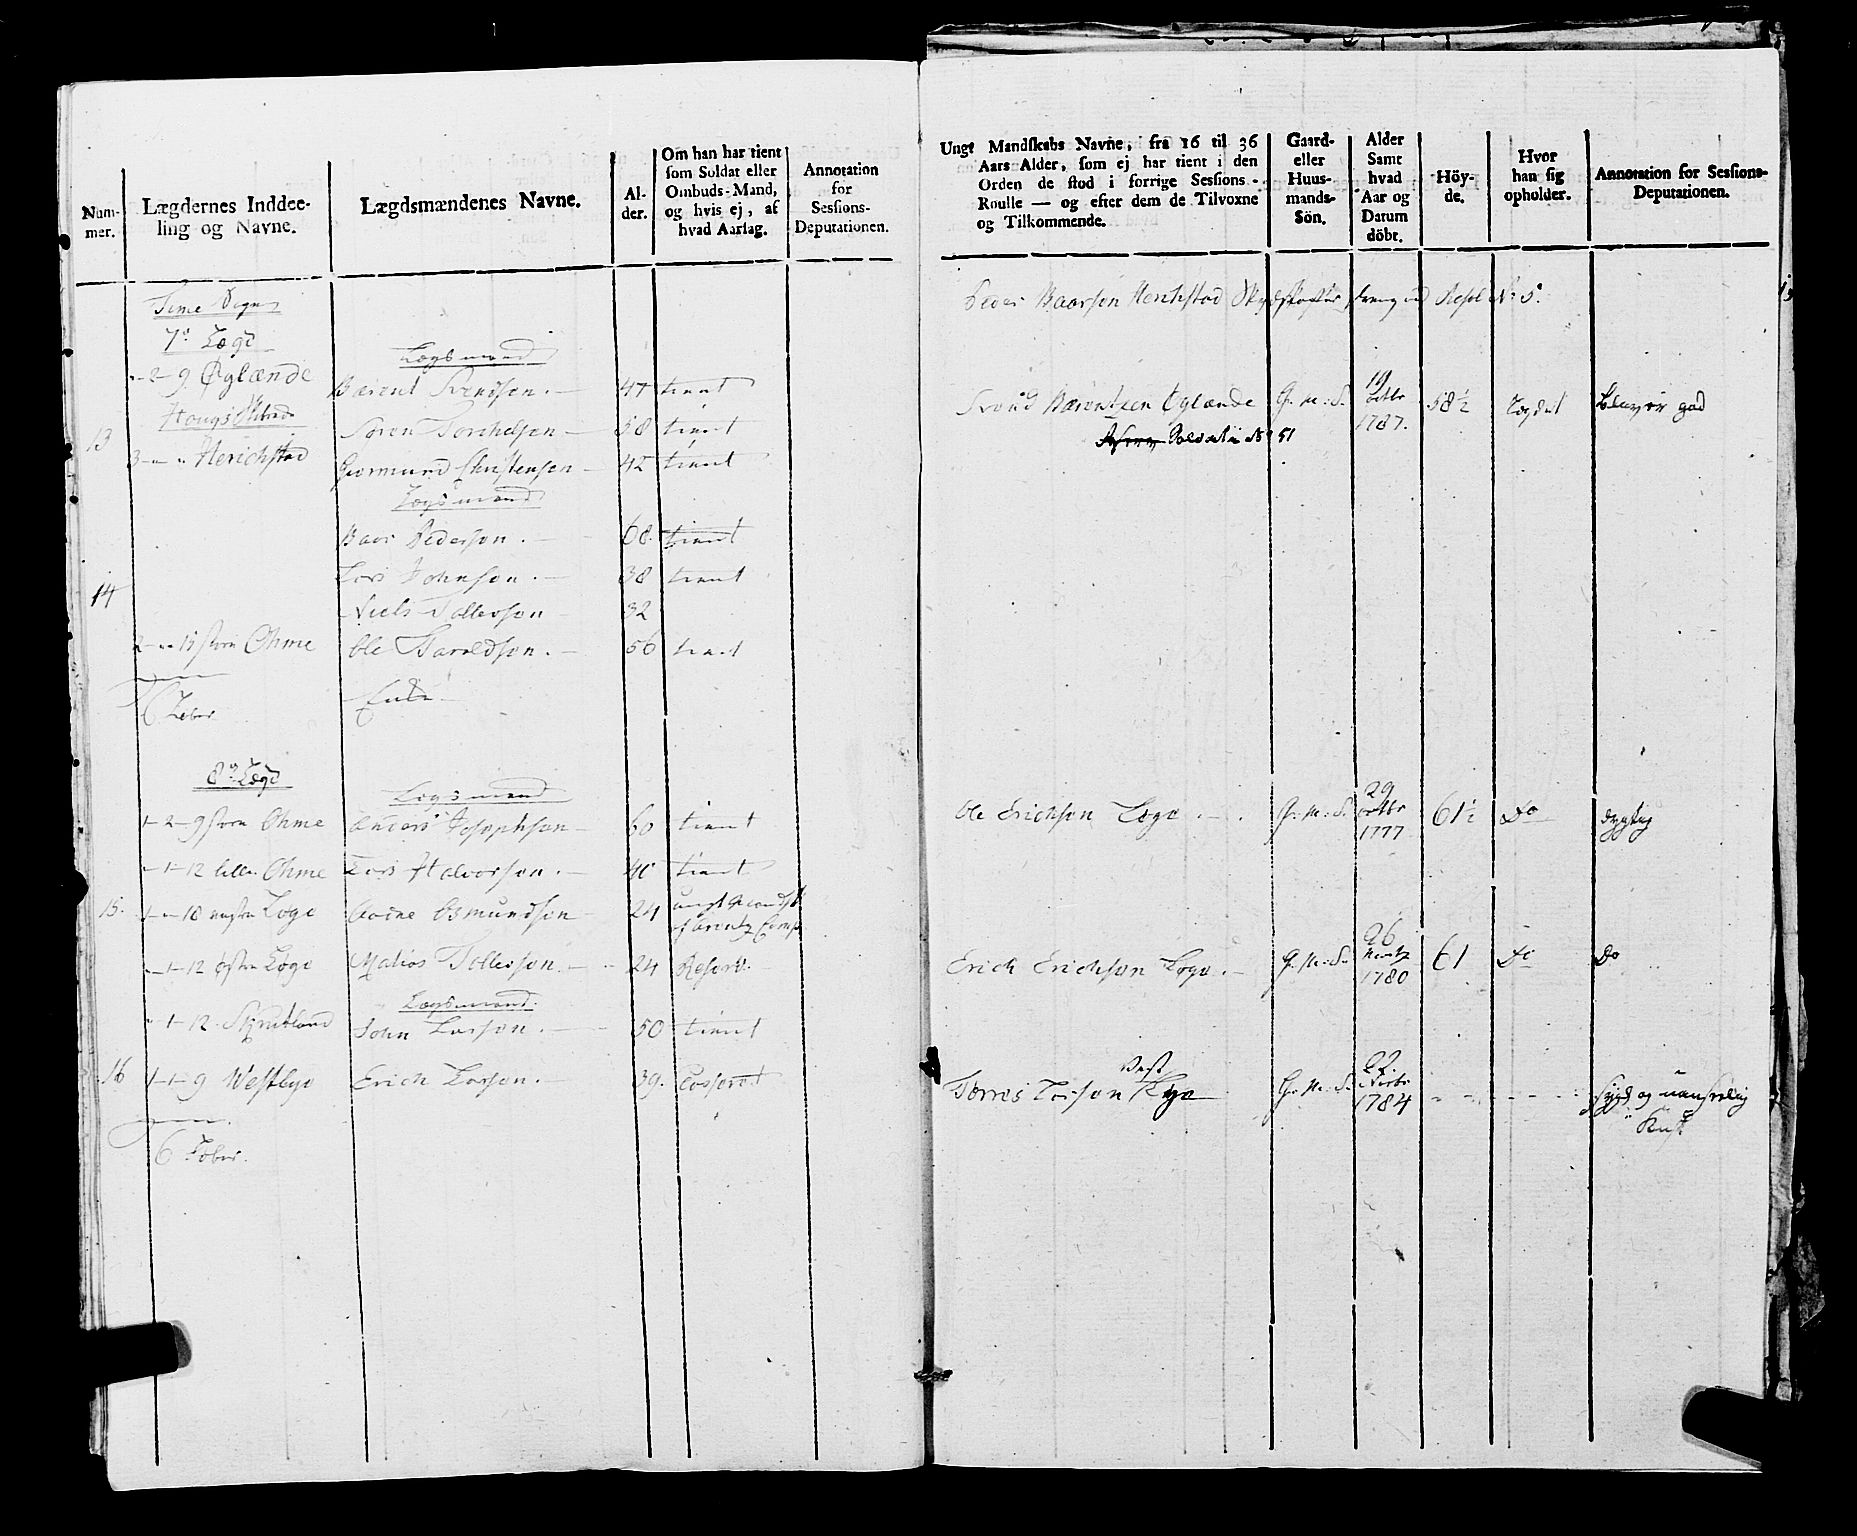 Num-
mer.
Lægdernes Inddee-
ling og Navne.
Lægdsmændenes Navne.
Al-
der.
Om han har tient
som Soldat eller
Ombuds-Mand,
og hvis ej, af
hvad Aarsag.
Annotation
for
Sessions-
Deputationen.
Time Sogn
7de Lægd
Lægsmænd
- 2 - 9 Øglænde Barent Svendsen. 47 tient
Hougs Skibrede
13 Søren Torchelsen 58 tient
3 - " - " Herichstad Giermund Christensen 42 tient
Lægsmænd
Baar Pedersen. 68. tient
14 Lars Johnsen. 38 tient
Niels Tollevsen 32
2 - " - 15 store Ohme Ole Haraldsen. 56 tient
6
8de Lægd
Lægsmænd
1 - 2 - 9 store Ohme Anders Josephsen 60 tient
- 1 - 12 lille Ohme Lars Halvorsen. 40 tient
15. 1 - " - 18 Lege Osmundsen 24
- 1 - 12 østre Lege Matias Tollevsen. 24 Reserv.
Lægsmænd.
" - 1 - 12. Skrudland John Larsen. 50 tient
16 1 - 1 - 9 Westlye Erich Larsen. 39. Casseret
6
Ungt Mandskabs Navne, fra 16 til 36
Aars Alder, som ej har tient i den
Orden de stod i forrige Sessions-
Roulle — og efter dem de Tilvoxne
og Tilkommende.
Gaard-
eller
Huus-
mands-
Sön.
Alder
Samt
hvad
Aar og
Datum
döbt.
Höy-
de.
Hvor
han sig
opholder.
Annotation for Sessions-
Deputationen.
Peder Baarsen Herichstad No 5.
19
Svend Barentsen Øglænde G. M: S. 1787. 58 ½ Lægdet god
Soldat i No 51
29
Ole Erichsen Lege G: M: S. octbr 61½ Do dygtig
1777
26
Erich Erichsen Lege. G: M: S. Martz 61 Do Do
1780
Vest
22.
Torres Larsen Lye G: M: S. 1784 - - - - - - syg og uanseelig